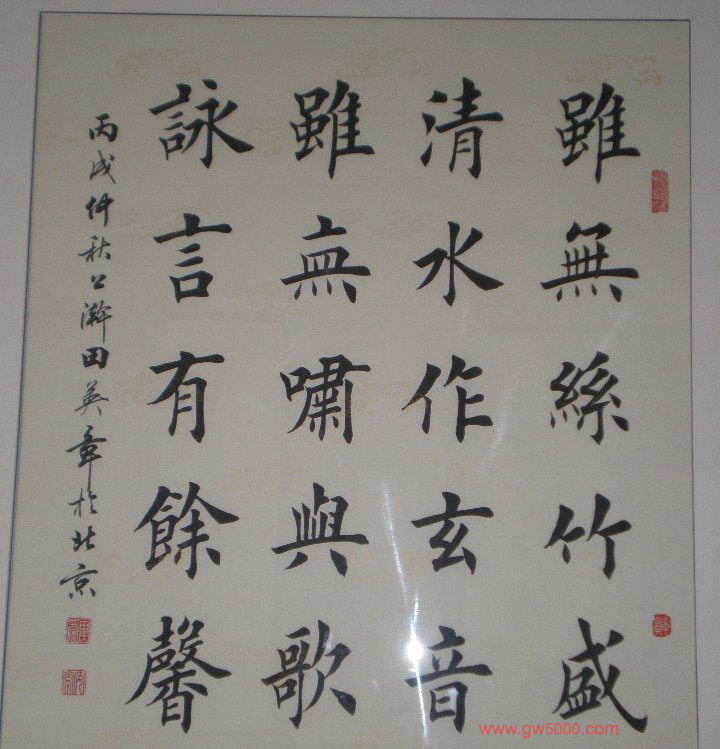 雖無絲竹盛
清水作玄音
雖無嘯與歌
詠言有餘馨
丙戌仲秋公瀚田英章於北京
www.gw5000.com